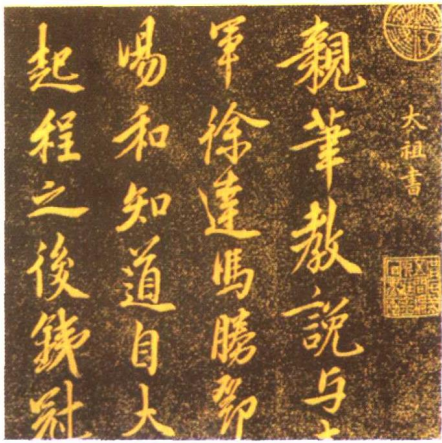 大祖書
親筆教說与
軍徐達馮勝鄧
湯和知道自大
起程之後銕冠